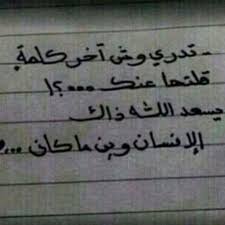 - تدري وش آخر كلمة
قلتها عنك ....؟!
يسعد الله ذاك
الإنسان وين ما كان ...